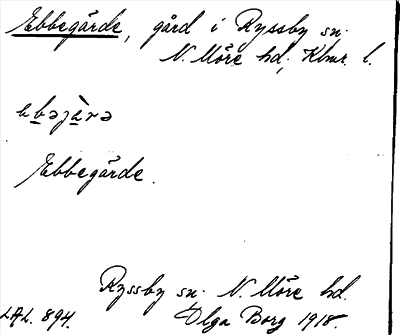 Ebbegärde, gård i Ryssby sn.
N. Möre hd., Klmr. l.
Ebbegärde.
Ryssby sn. N. Möre hd.
LAL. 894. Olga Borg 1918.